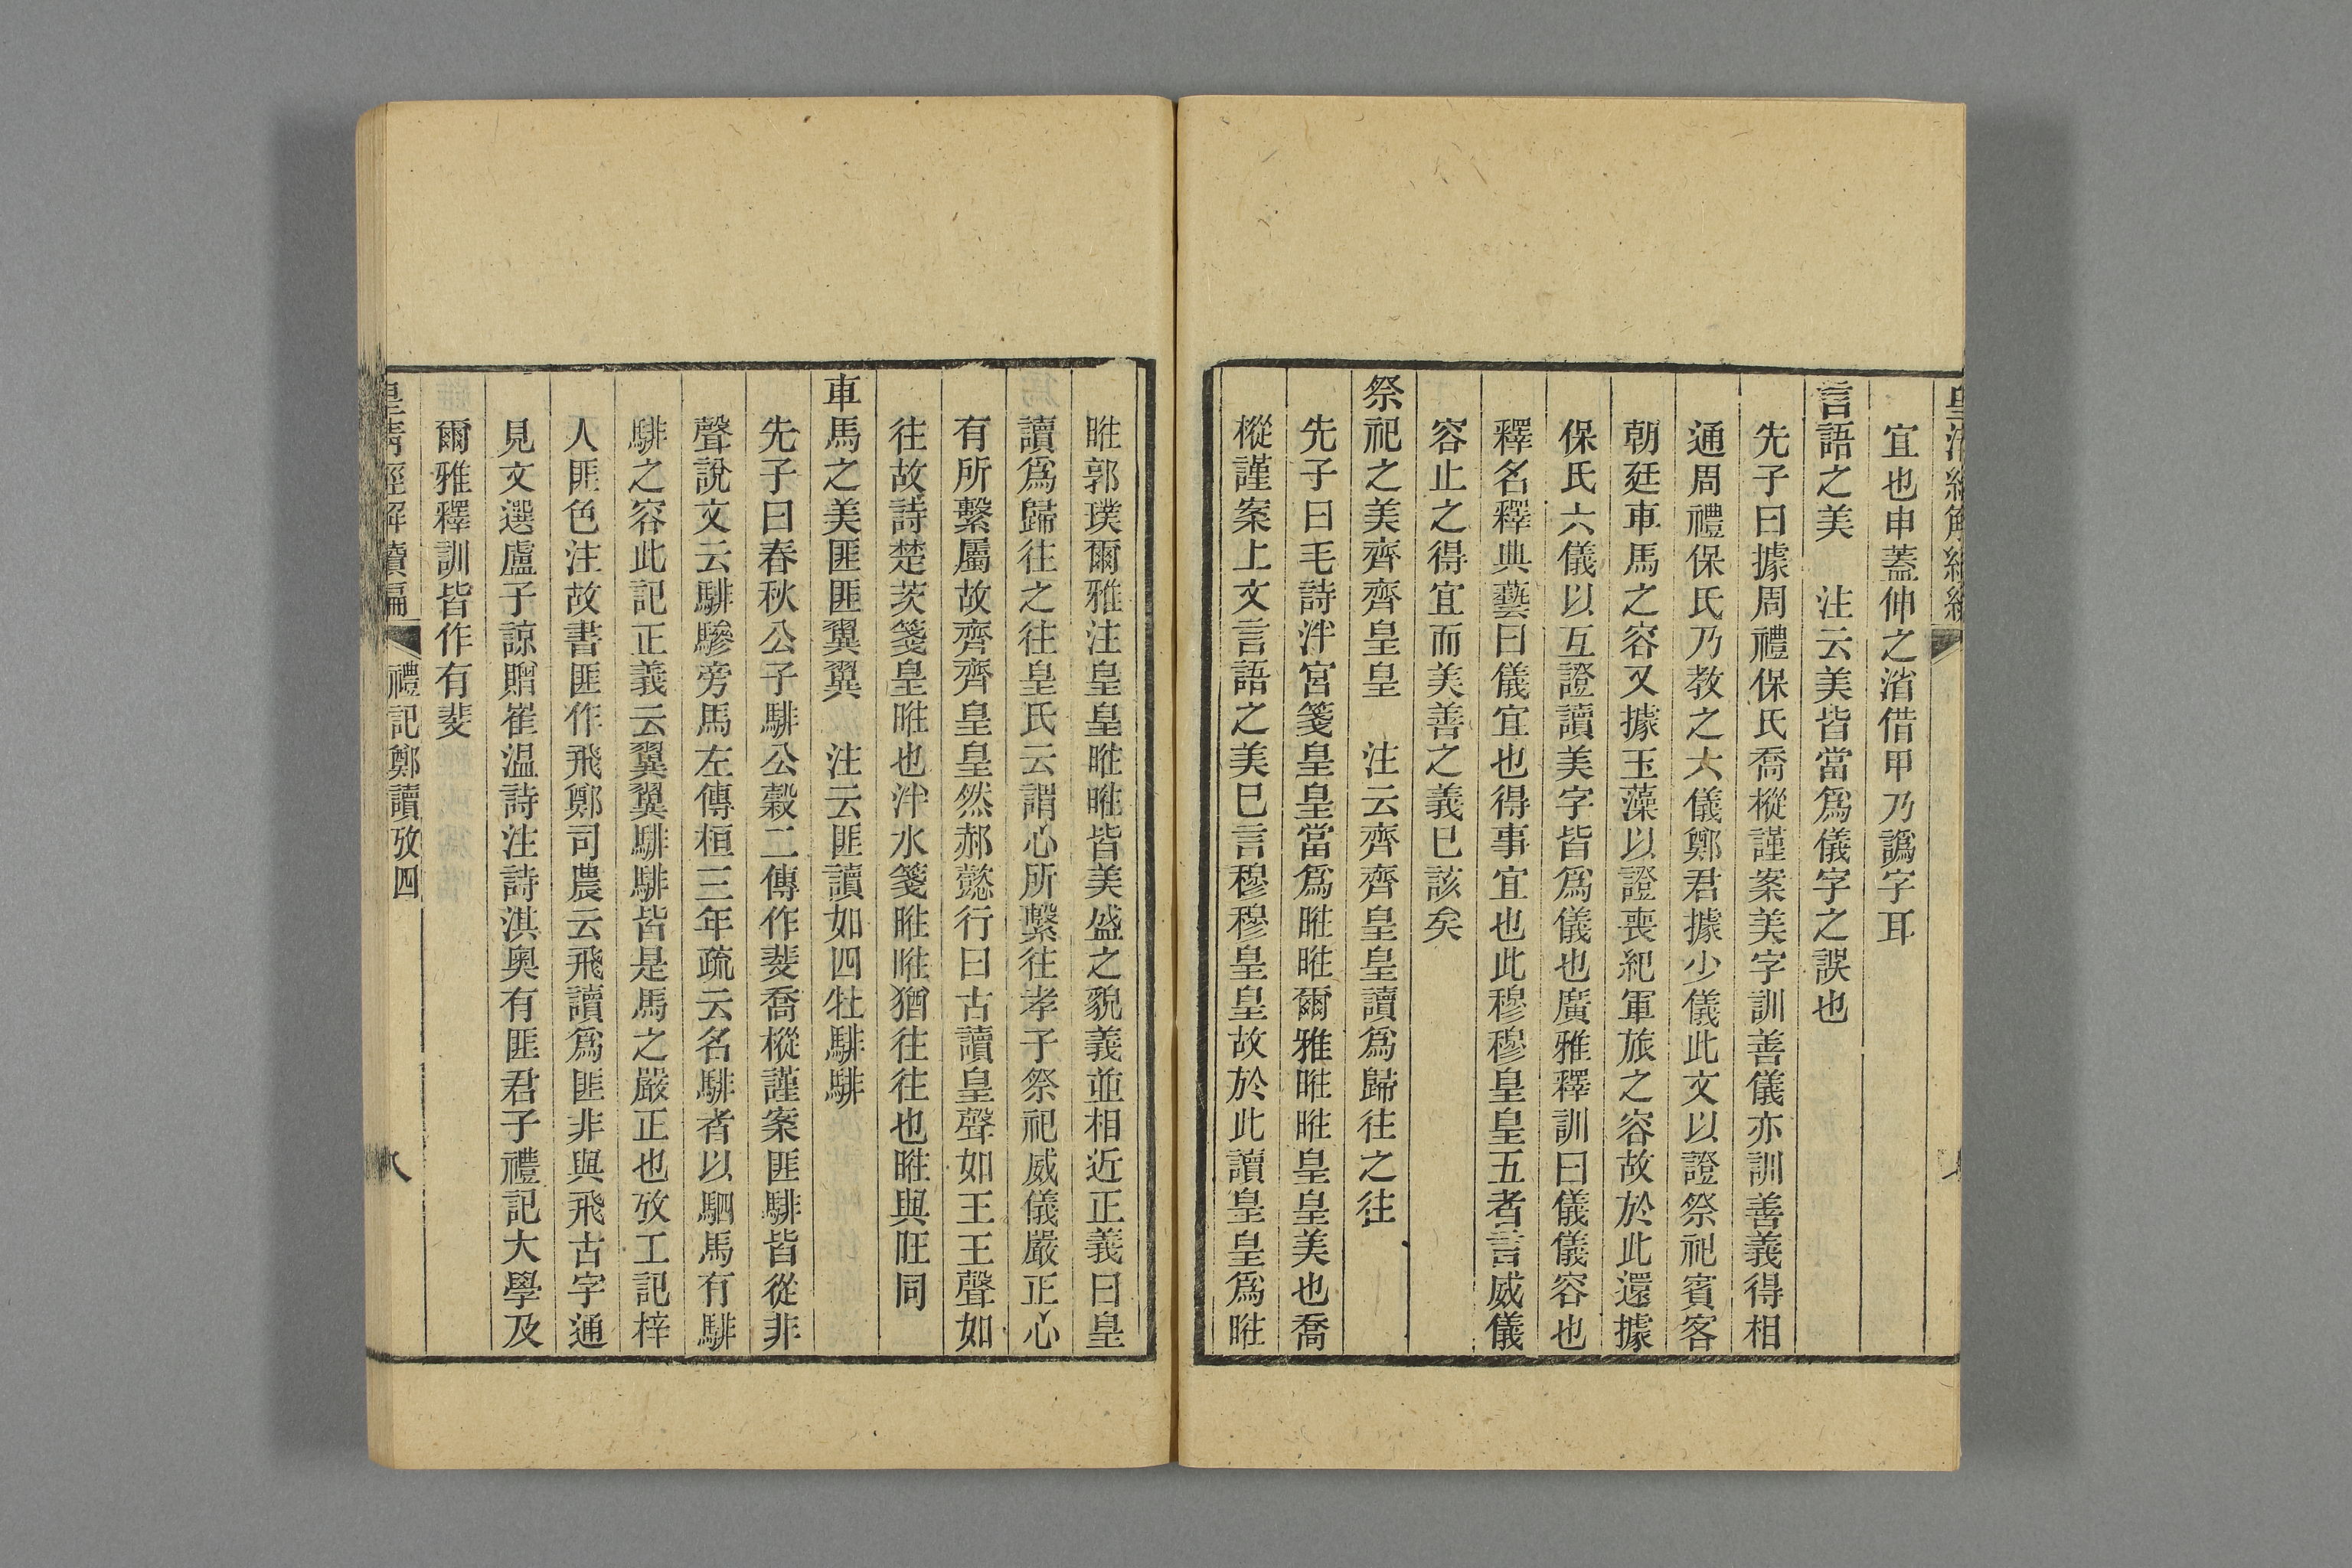 宜也申蓋伸之渻借甲乃譌字耳
言語之美　注云美皆當爲儀字之誤也
先子曰據周禮保氏喬樅謹案美字訓善儀亦訓善義得相
通周禮保氏乃教之六儀鄭君據少儀此文以證祭祀賓客
朝廷車馬之容又據玉藻以證喪紀軍旅之容故於此還據
保氏六儀以互證讀美字皆爲儀也廣雅釋訓曰儀儀容也
釋名釋典藝曰儀宜也得事宜也此穆穆皇皇五者言威儀
容止之得宜而美善之義巳該矣
祭祀之美齊齊皇皇　注云齊齊皇皇讀爲歸往之往
先子曰毛詩泮宮箋皇皇當爲暀暀爾雅暀暀皇皇美也喬
樅謹案上文言語之美巳言穆穆皇皇故於此讀皇皇爲暀
暀郭璞爾雅注皇皇暀暀皆美盛之貌義並相近正義曰皇
讀爲歸往之往皇氏云謂心所繫往孝子祭祀威儀嚴正心
有所繫屬故齊齊皇皇然郝懿行曰古讀皇聲如王王聲如
往故詩楚茨箋皇暀也泮水箋暀暀猶往往也暀與旺同
車馬之美匪匪翼翼　注云匪讀如四牡騑騑
先子曰春秋公子騑公穀二傳作斐喬樅謹案匪騑皆從非
聲說文云騑驂旁馬左傳桓三年疏云名騑者以駟馬有騑
騑之容此記正義云翼翼騑騑皆是馬之嚴正也攷工記梓
人匪色注故書匪作飛鄭司農云飛讀爲匪非與飛古字通
見文選盧子諒贈崔温詩注詩淇奧有匪君子禮記大學及
爾雅釋訓皆作有斐
皇清經解續編　禮記鄭讀攷四　八